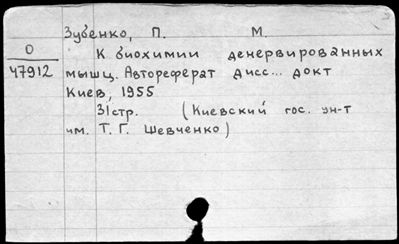 Зубенко, П. М.
О
47912
К биохимии денервированных
мышц. Автореферат дисс... докт
Киев, 1955
31стр. (Киевский гос. ун-т
им. Т. Г. Шевченко)